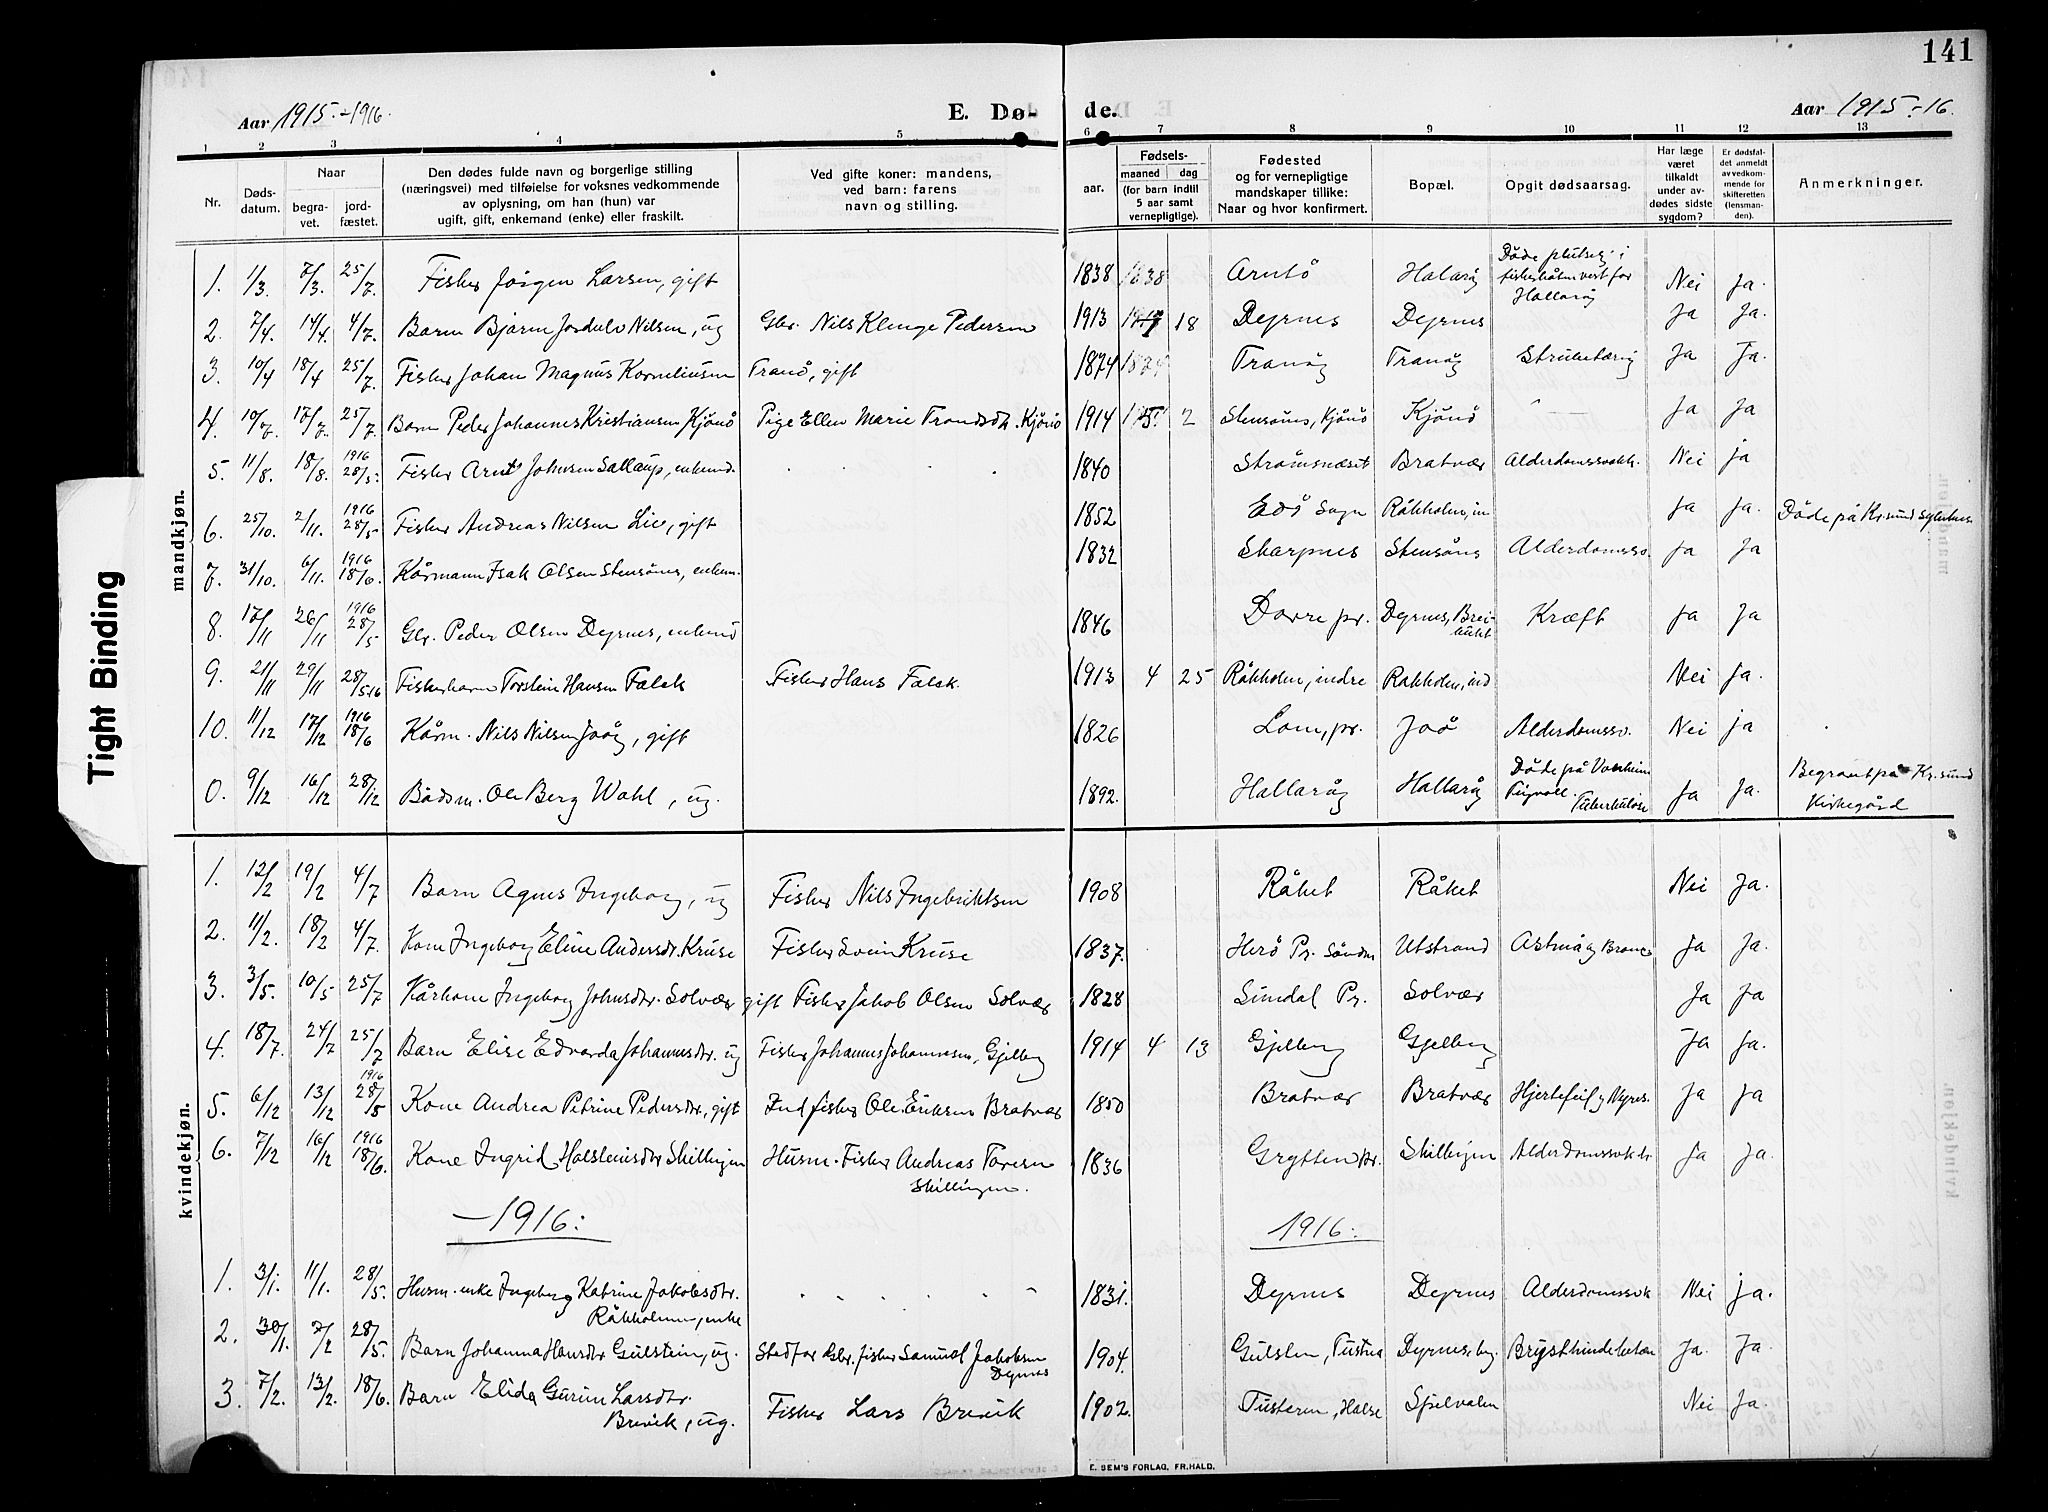 141
Aar 1915-1916.
E. Dø-
de.
Aar 1915-16.
1 2 3 4 5 6 7 8 9 10 11 12 13
Nr.
Døds-
datum.
Naar
begra-
vet.
jord-
fæstet.
Den dødes fulde navn og borgerlige stilling
(næringsvei) med tilføielse for voksnes vedkommende
av oplysning, om han (hun) var
ugift, gift, enkemand (enke) eller fraskilt.
Ved gifte koner: mandens,
ved barn: farens
navn og stilling.
aar.
Fødsels-
maaned dag
(for barn indtil
5 aar samt
vernepligtige).
Fødested
og for vernepligtige
mandskaper tillike:
Naar og hvor konfirmert.
Bopæl.
Opgit dødsaarsag.
Har læge
været
tilkaldt
under av-
dødes sidste
sygdom?
Er dødsfal-
det anmeldt
av vedkom-
mende for
skifteretten
(lensman-
den).
Anmerkninger.
mandkjøn.
1. 1/3. 7/3. 25/7. Fisker Jørgen Larsen, gift 1838 Arntö Halarög Døde plutseg i fiskerbåten vest for Hallarög Nei Ja.
2. 7/4. 14/4. 4/7. Barn Bjarne Nilsen, ug Gbr. Nils Klenge Pedersen 1913 18 Dyrnes Dyrnes Ja Ja.
3. 10/4 18/4 25/7. Fisker Johan Magnus Korneliussen Tranö, gift 1874 Tranög Tranög Ja Ja.
4. 10/7. 17/7. 25/7. Barn Peder Johannes Kristiansen Kjönö Pige Ellen Marie Trondsdt. Kjönö 1914 2 Stensönes, Kjönö Kjönö " — Ja Ja
5. 11/8. 18/8. 1916 28/5. Fisker Arnt Johnsen Sallaup, enkemd. 1840 Strömsnæset Bratvær Alderdomssvakh. Nei ja
6. 25/10. 2/11. 1916 28/5 Fisker Andreas Nilsen Liv, gift 1852 Edö Sogn Råkholm, in Ja Ja. Døde på Kr.sund sykehus
7. 31/10. 6/11. 1916 18/6. Kårmann Isak Olsen Stensönes, enkem. 1832 Skarpnes Stensöns Alderdomssv. Ja Ja
8. 17/11 26/11 1916 28/5 Gbr. Peder Olsen Dyrnes, enkemd 1846 Dovre pr. Dyrnes, Breibukt Kræft Ja Ja
9. 21/11 29/11 28/5 16 Fiskerbarn Torstein Hansen Falck Fisker Hans Falck. 1913 4 25 Råkholm, indre Råkholm, ind Nei Ja.
10. 11/12 17/12 1916 18/6 Kårm. Nils Nilsen Joög, gift 1826 Lom, pr. Joö Alderdomssv. Nei ja
0. 9/12 16/12 28/12 Bådsm. Ole Berg Wahl, ug. 1892. Hallarög Hallarög Døde på Tingvoll. Tuberkulose Ja Ja. Begravet på Kr.sund Kirkegård
kvindekjøn.
1. 12/2 19/2 4/7 Barn Agnes Ingeborg, ug Fisker Nils Ingebriktsen 1908 Råket Råket Nei Ja.
2. 11/2. 18/2 4/7. Kone Ingeborg Eline Andersdt. Kruse Fisker Svein Kruse 1837. Herö Pr. Söndm Utstrand Astma og Bronc Ja Ja.
3. 3/5. 10/5 25/7 Kårkone Ingeborg Johnsdtr. Solvær gift Fisker Jakob Olsen Solvær 1828 Sundal Pr. Solvær Ja Ja
4. 18/7. 24/7 25/7 Barn Elise Edvarda Johannesdtr. ug Fisker Johannes Johannesen, Gjelberg 1914 4 13 Gjelberg Gjelberg Ja Ja.
5. 6/12 13/12 1916 28/5 Kone Andrea Petrine Pedersdtr, gift Ind fisker Ole Eriksen Bratvær 1850 Bratvær Bratvær Hjertefeil og Nyres. Ja Ja
6. 7/12 16/12 1916 18/6. Kone Ingrid Holsteinsdtr Skillingen Husm. Fisker Andreas Toresen Skillingen. 1836 Grytten Pr. Skillingen Alderdomssvakh. Ja Ja.
—1916: 1916:
1. 3/1. 11/1. 28/5. Husm. enke Ingeborg Katrine Jakobsdtr. Råkholmen, enke 1831. Dyrnes Dyrnes Alderdomssvak Nei ja.
2. 30/1. 7/2 28/5. Barn Johanna Hansdtr Gulstein, ug. Stedfar Gbr. fisker Samuel Jakobsen Dyrnes 1904. Gulsten, Tustna Dyrnes, bg. Brysthindebetæn Ja. Ja.
3. 7/2. 13/2. 18/6. Barn Elida Gurine Larsdtr. Brevik, ug. Fisker Lars Brevik 1902. Tusteren, Halse Spilvalen Nei Ja.
E. SEM'S FORLAG, FR.HALD.
Tight Binding